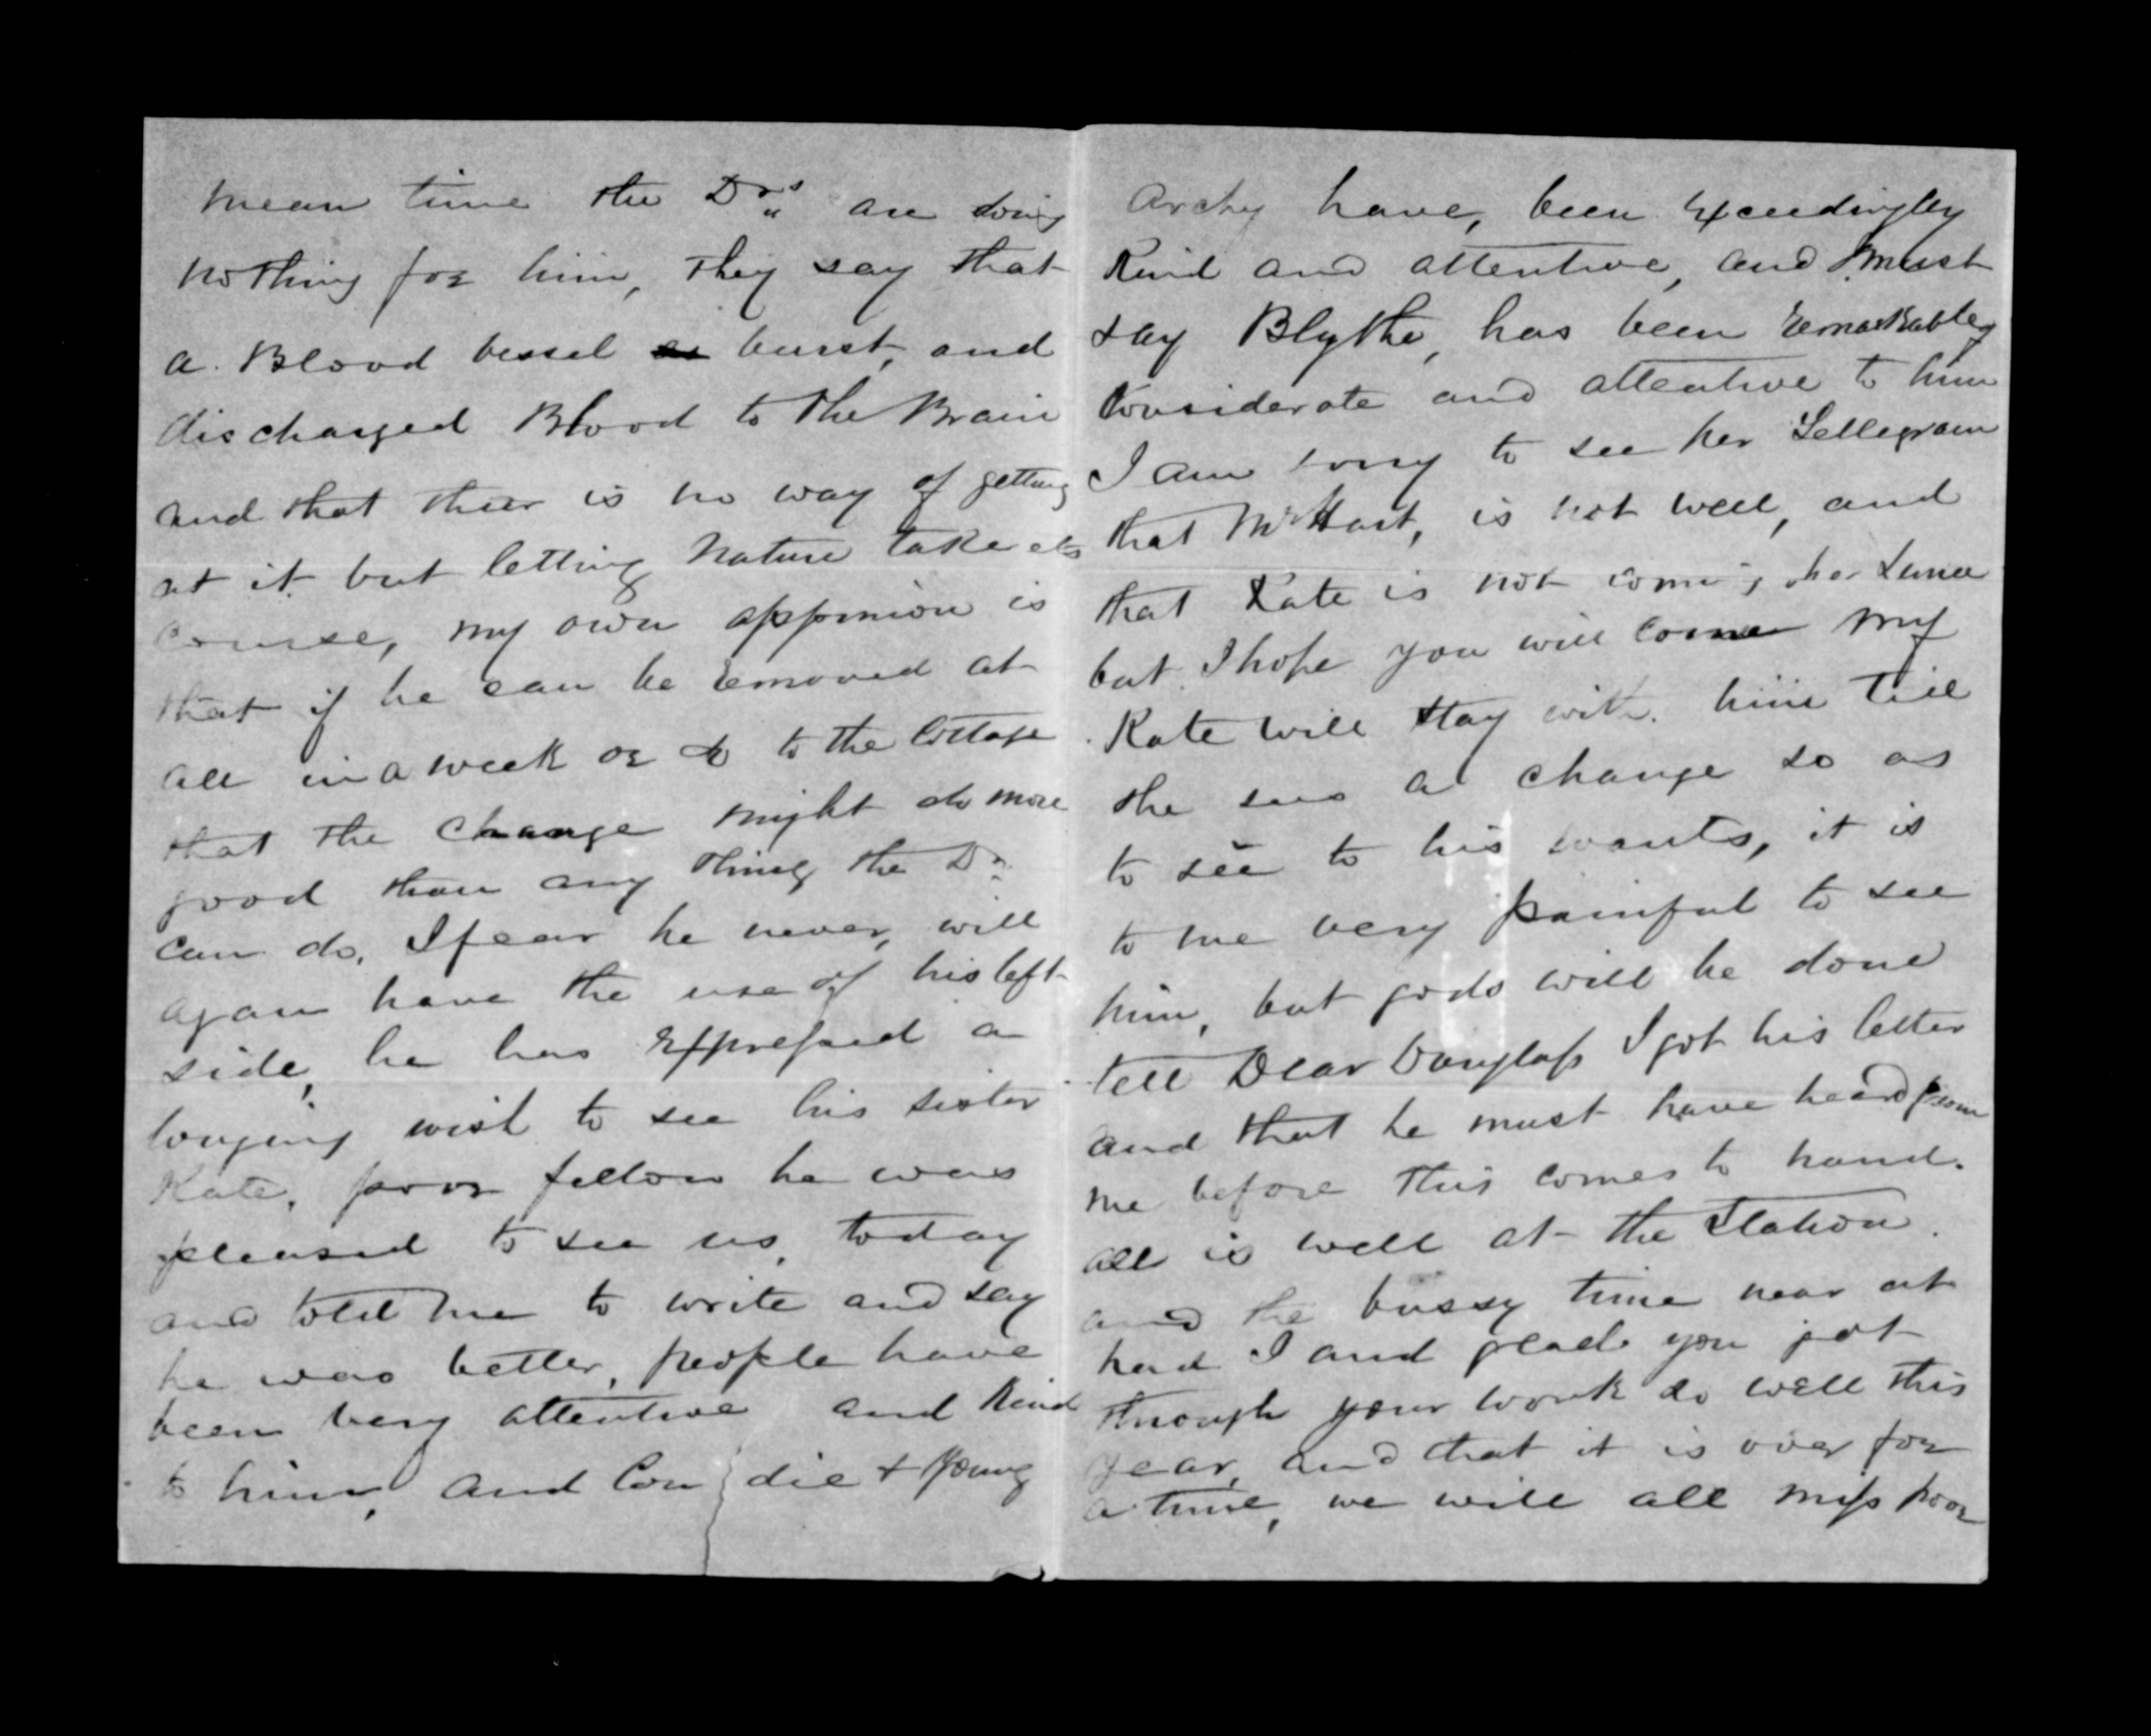 mean time the Drs are doing
nothing for him, They say that
a Blood vessel burst, and
discharged Blood to the Brain
and that ther is no way of getting
at it but letting Nature take its
course, my own oppinion is
that if he can be removed at
all in a week or so to the Cottage
that the change might do more
good than any thing the Dr
can do, I fear he never, will
again have the use of his left
side, he has expressed a
longing wish to see his sister
Kate, poor fellow he was
pleased to see us, today
and told me to write and say
he was better, people have
been very attentive and kind
to him, and Con die & Young
Archy have, been exceedingly
kind and attentive, and I must
say Blythe, has been remarkably
considerate and attentive to him
I am sorry to see her Tellegram
that Mr Hart, is not well, and
that Kate is not coming
but I hope you will come my
Kate will stay with him Till
she sees a change so as
to see to his wants, it is
to me very painful to see
him, but gods will be done
tell Dear Douglass I got his letter
and that he must have heard from
me before This comes to hand.
all is well at the Station.
and the bussy time near at
had I and glad you got
through your work so well this
year, and that it is over for
a time, we will all miss poor